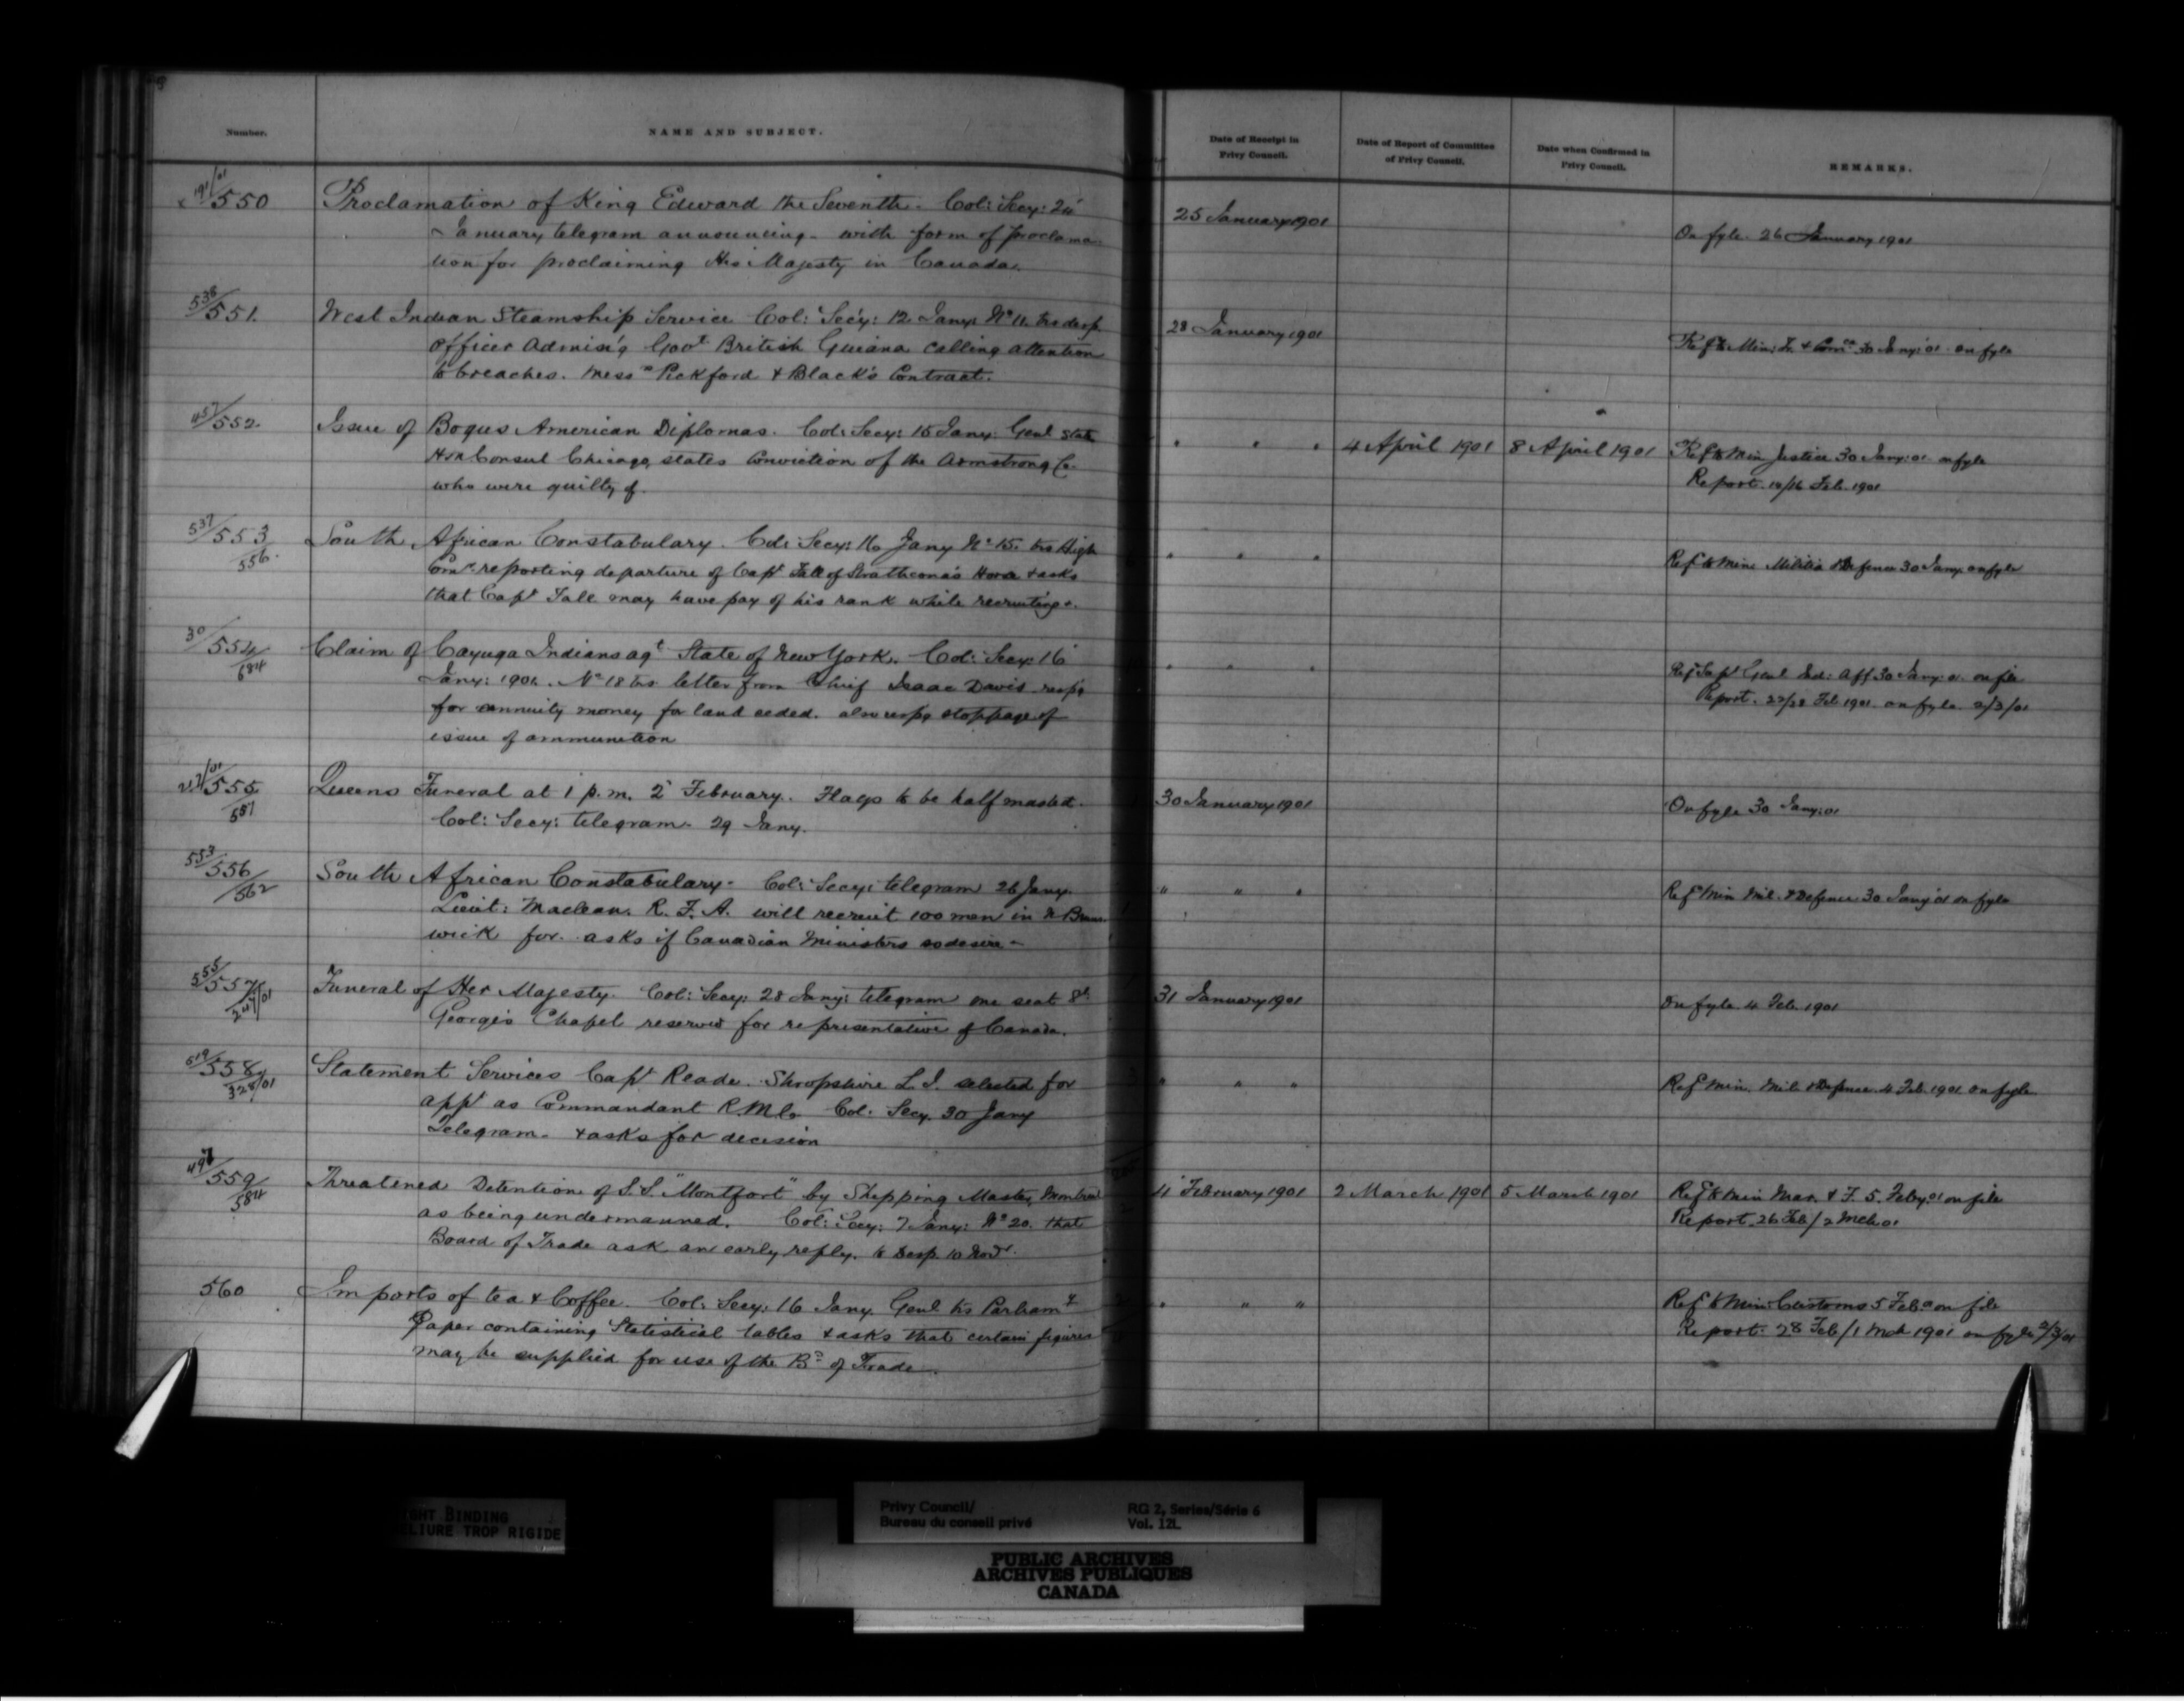 Number.
NAME AND SUBJECT.
Date of Receipt in
Privy Council.
Date of Report of Committee
of Privy Council.
Date when Confirmed in
Privy Council.
REMARKS.
191/01
550
Proclamation of King Edward the Seventh. Col: Secy: 24
January telegram announcing with form of proclama-
tion for proclaiming His Majesty in Canada.
25 January 1901
On fyle 26 January 1901
538/551.
West Indian Steamship Service Col: Secy: 12 Jany: No 11. trs desp.
Officer Admin'g Govt British Guiana calling attention
to breaches. Messrs Pickford & Black's Contract.
28 January 1901
Ref to Min: Tr. & Comce 30 Jany: 01 on fyle
457/552.
Issue of Bogus American Diplomas. Col: Secy: 15 Jany: Genl
HM Consul Chicago, states conviction of the Armstrong Co.
who were guilty of.
" " "
4 April 1901
8 April 1901
Ref to Min Justice 30 Jany: 01 on fyle
Report 16 Feb. 1901
537/553
556.
South African Constabulary. Col: Secy: 16 Jany No 15. trs High
Comr reporting departure of Capt of Strathcona's Horse & asks
that Capt may have pay of his rank while recruiting.
" " "
Ref to Min: Militia & Defence 30 Jany. on fyle
30/554
684
Claim of Cayuga Indians agt State of New York. Col: Secy: 16
Jany: 1901. No 18 trs letter from Chief Isaac Davis resp'g
for annuity money for land ceded. also resp'g stoppage of
issue of ammunition
" " "
Ref Supt Genl Ind: Aff. 30 Jany: 01. on file
Report. 28 Feb 1901 on fyle 2/3/01
555.
557
Queens Funeral at 1 p.m. 2 February. Flags to be half masted.
Col: Secy: telegram 29 Jany.
30 January 1901
On fyle 30 Jany: 01
553/556
562
South African Constabulary. Col: Secy: telegram 26 Jany.
Lieut: Maclean. R. F. A. will recruit 100 men in N Bruns-
wick for. asks if Canadian Ministers so desire
" " "
Ref Min Mil. & Defence 30 Jany 01 on fyle
555/557
247/01
Funeral of Her Majesty. Col: Secy: 28 Jany: telegram one seat St
George's Chapel reserved for representative of Canada.
31 January 1901
On fyle 4 Feb. 1901
519/558
328/01
Statement Services Capt Reade. Shropshire L. I. selected for
appt as Commandant R.M.C. Col: Secy. 30 Jany
Telegram. & asks for decision
" " "
Ref Min. Mil. & Defence 4 Feb. 1901 on fyle.
497/559
584
Threatened Detention of S.S. "Montfort" by Shipping Master, Montreal
as being undermanned. Col: Secy: 7 Jany: No 20. that
Board of Trade ask an early reply. to Desp. 10 Novr.
4 February 1901
2 March 1901
5 March 1901
Ref to Min Mar. & F. 5. Feby. 01 on file
Report. 26 Feb / 2 Mch 01
560
Imports of tea & Coffee. Col: Secy: 16 Jany. Genl trs Parliamy
Paper containing Statistical tables & asks that certain figures
may be supplied for use of the Bd of Trade.
" " "
Ref to Min: Customs 5 Feb. 01 on file
Report. 28 Feb / 1 Mch 1901 on fyle 2/3/01
GHT BINDING
ELIURE TROP RIGIDE
Privy Council/
Bureau du conseil privé
RG 2, Series/Série 6
Vol. 121
PUBLIC ARCHIVES
ARCHIVES PUBLIQUES
CANADA